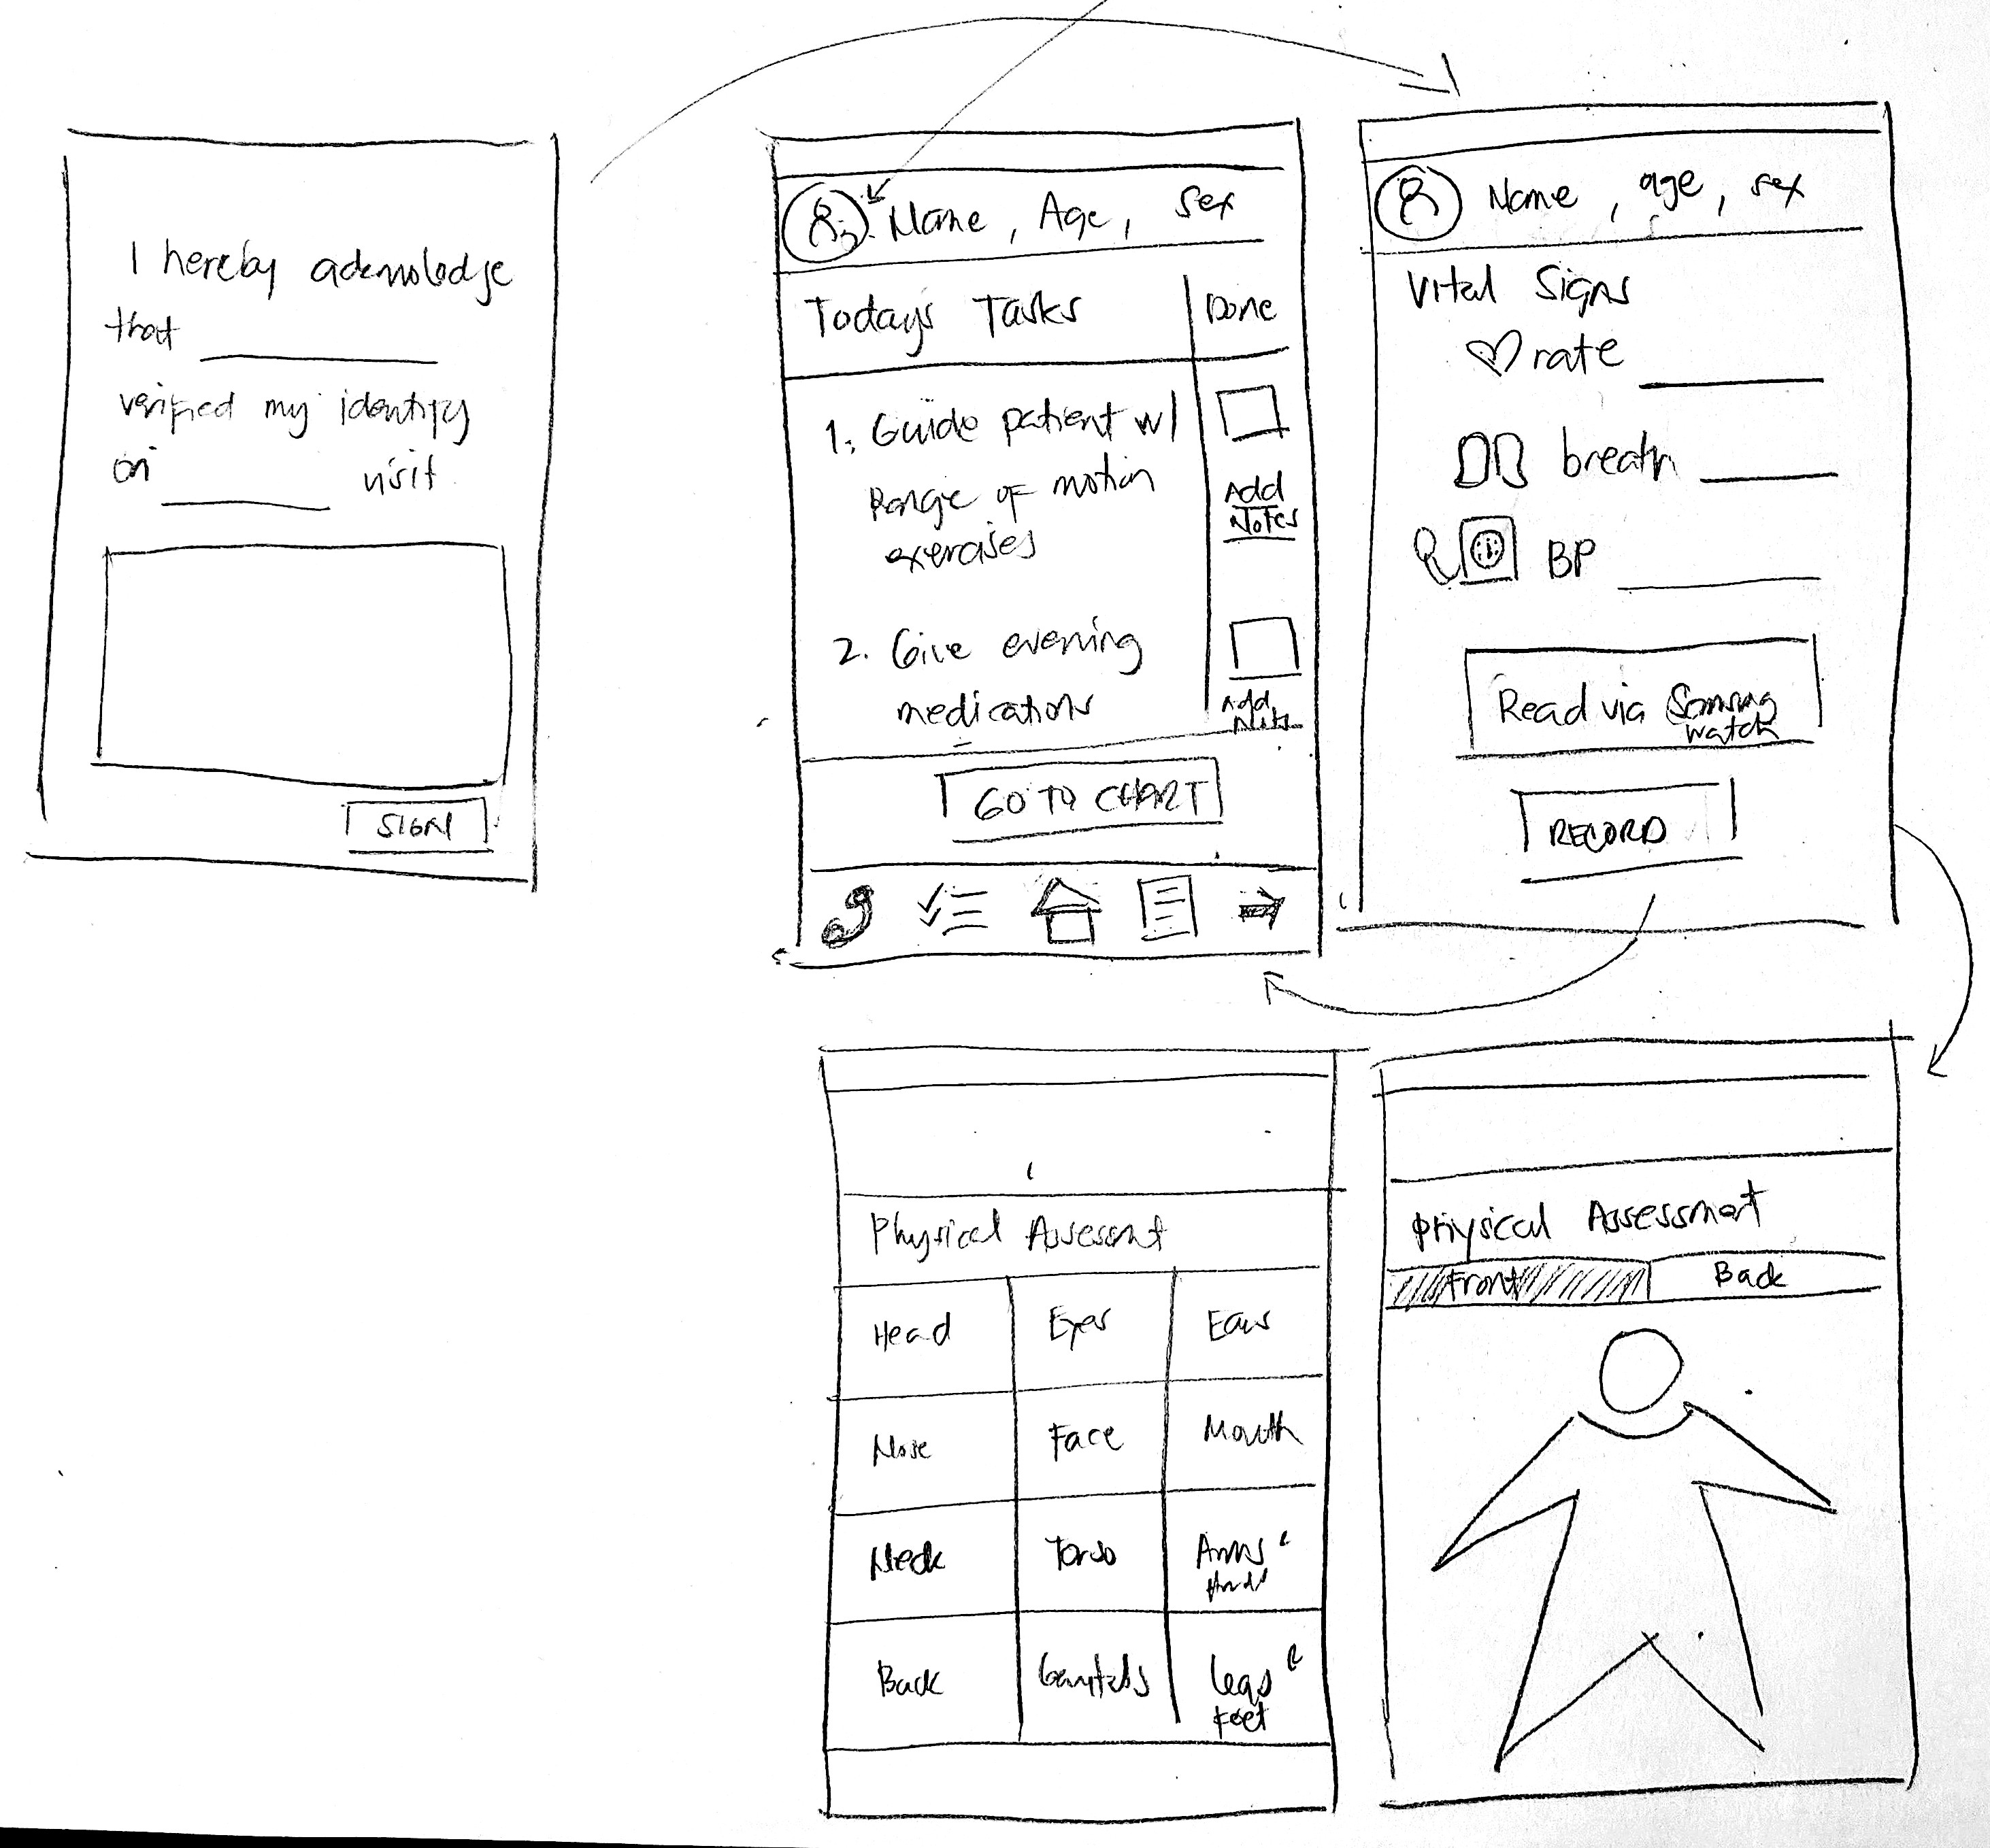 I hereby acknowledge
that
verified my identity
on visit
SIGN
Name, Age, Sex
Todays Tasks Done
1. Guide patient w/
Range of motion
exercises
Add
Notes
2. Give evening
medications
Add
Notes
GO TO CHART
Name, age, sex
Vital Signs
rate
breath
BP
Read via Samsung
watch
RECORD
Physical Assessmt
Head Eyes Ears
Nose Face Mouth
Neck Torso Arms &
Hands
Back Genitals Legs &
Feet
Physical Assessment
Front Back